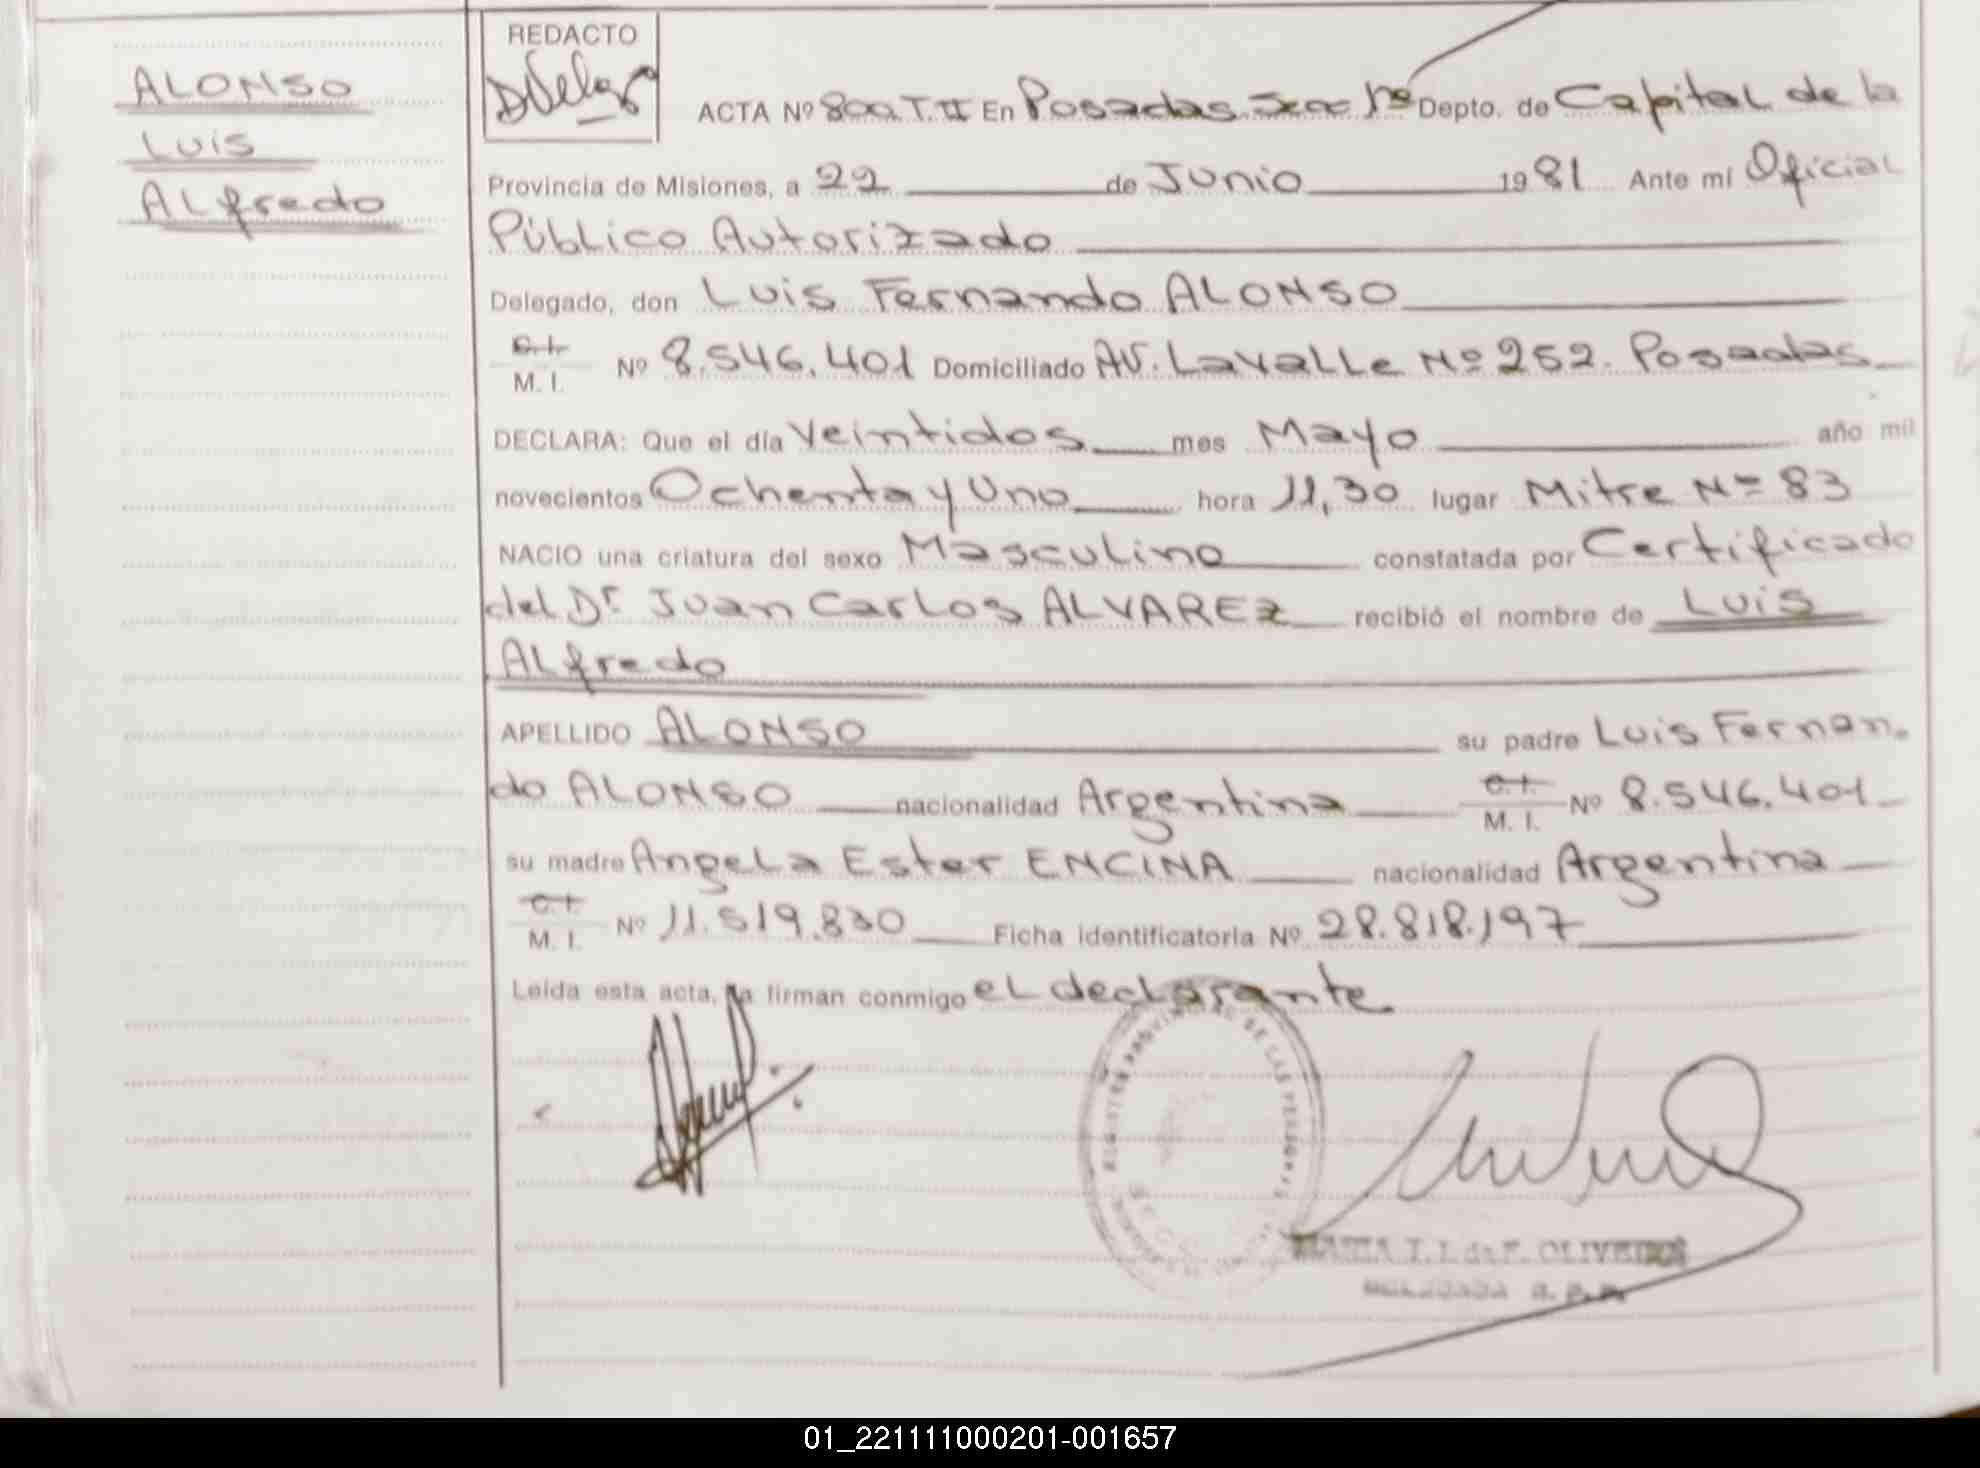 ALONSO
Luis
Alfredo
REDACTO
ACTA Nº 800 T. II En Posadas Secc 1ª Depto. de Capital de la
Provincia de Misiones, a 22 de Junio 1981 Ante mí Oficial
Público Autorizado
Delegado, don Luis Fernando ALONSO
C.I.
M. I. Nº 8.546.401 Domiciliado AV. Lavalle Nº 252. Posadas
DECLARA: Que el día Veintidos mes Mayo año mil
novecientos Ochenta y Uno hora 11,30 lugar Mitre Nº 83
NACIO una criatura del sexo Masculino constatada por Certificado
del Dr. Juan Carlos ALVAREZ recibió el nombre de Luis
Alfredo
APELLIDO ALONSO su padre Luis Fernan-
do ALONSO nacionalidad Argentina C.I. M. I. Nº 8.546.401
su madre Angela Ester ENCINA nacionalidad Argentina
C.I.
M. I. Nº 11.519.830 Ficha identificatoria Nº 28.818.197
Leída esta acta, la firman conmigo el declarante
REGISTRO PROVINCIAL DE LAS PERSONAS
MARIA T. I. de F. OLIVEIRA
DELEGADA
01_221111000201-001657